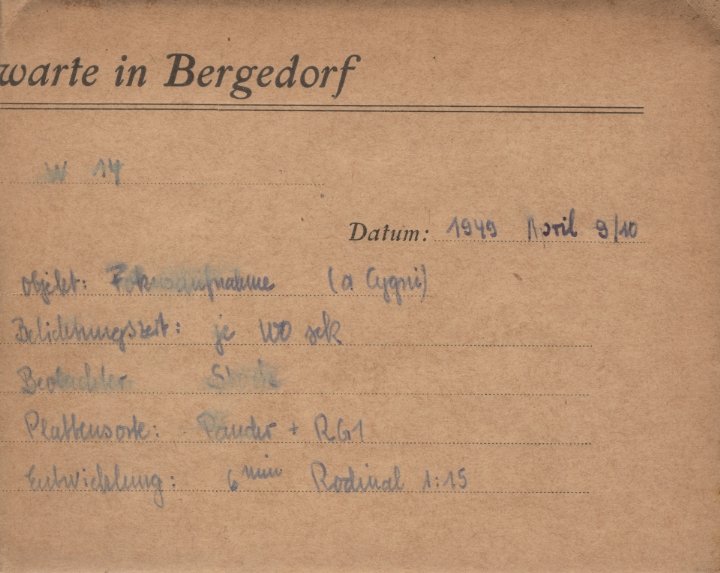 warte in Bergedorf
W 14
Datum: 1949 April 9/10
Objekt: Fokusaufnahme (α Cygni)
Belichtungszeit: je 100 sek
Beobachter:
Plattensorte: + RG1
Entwicklung: 6 min Rodinal 1:15